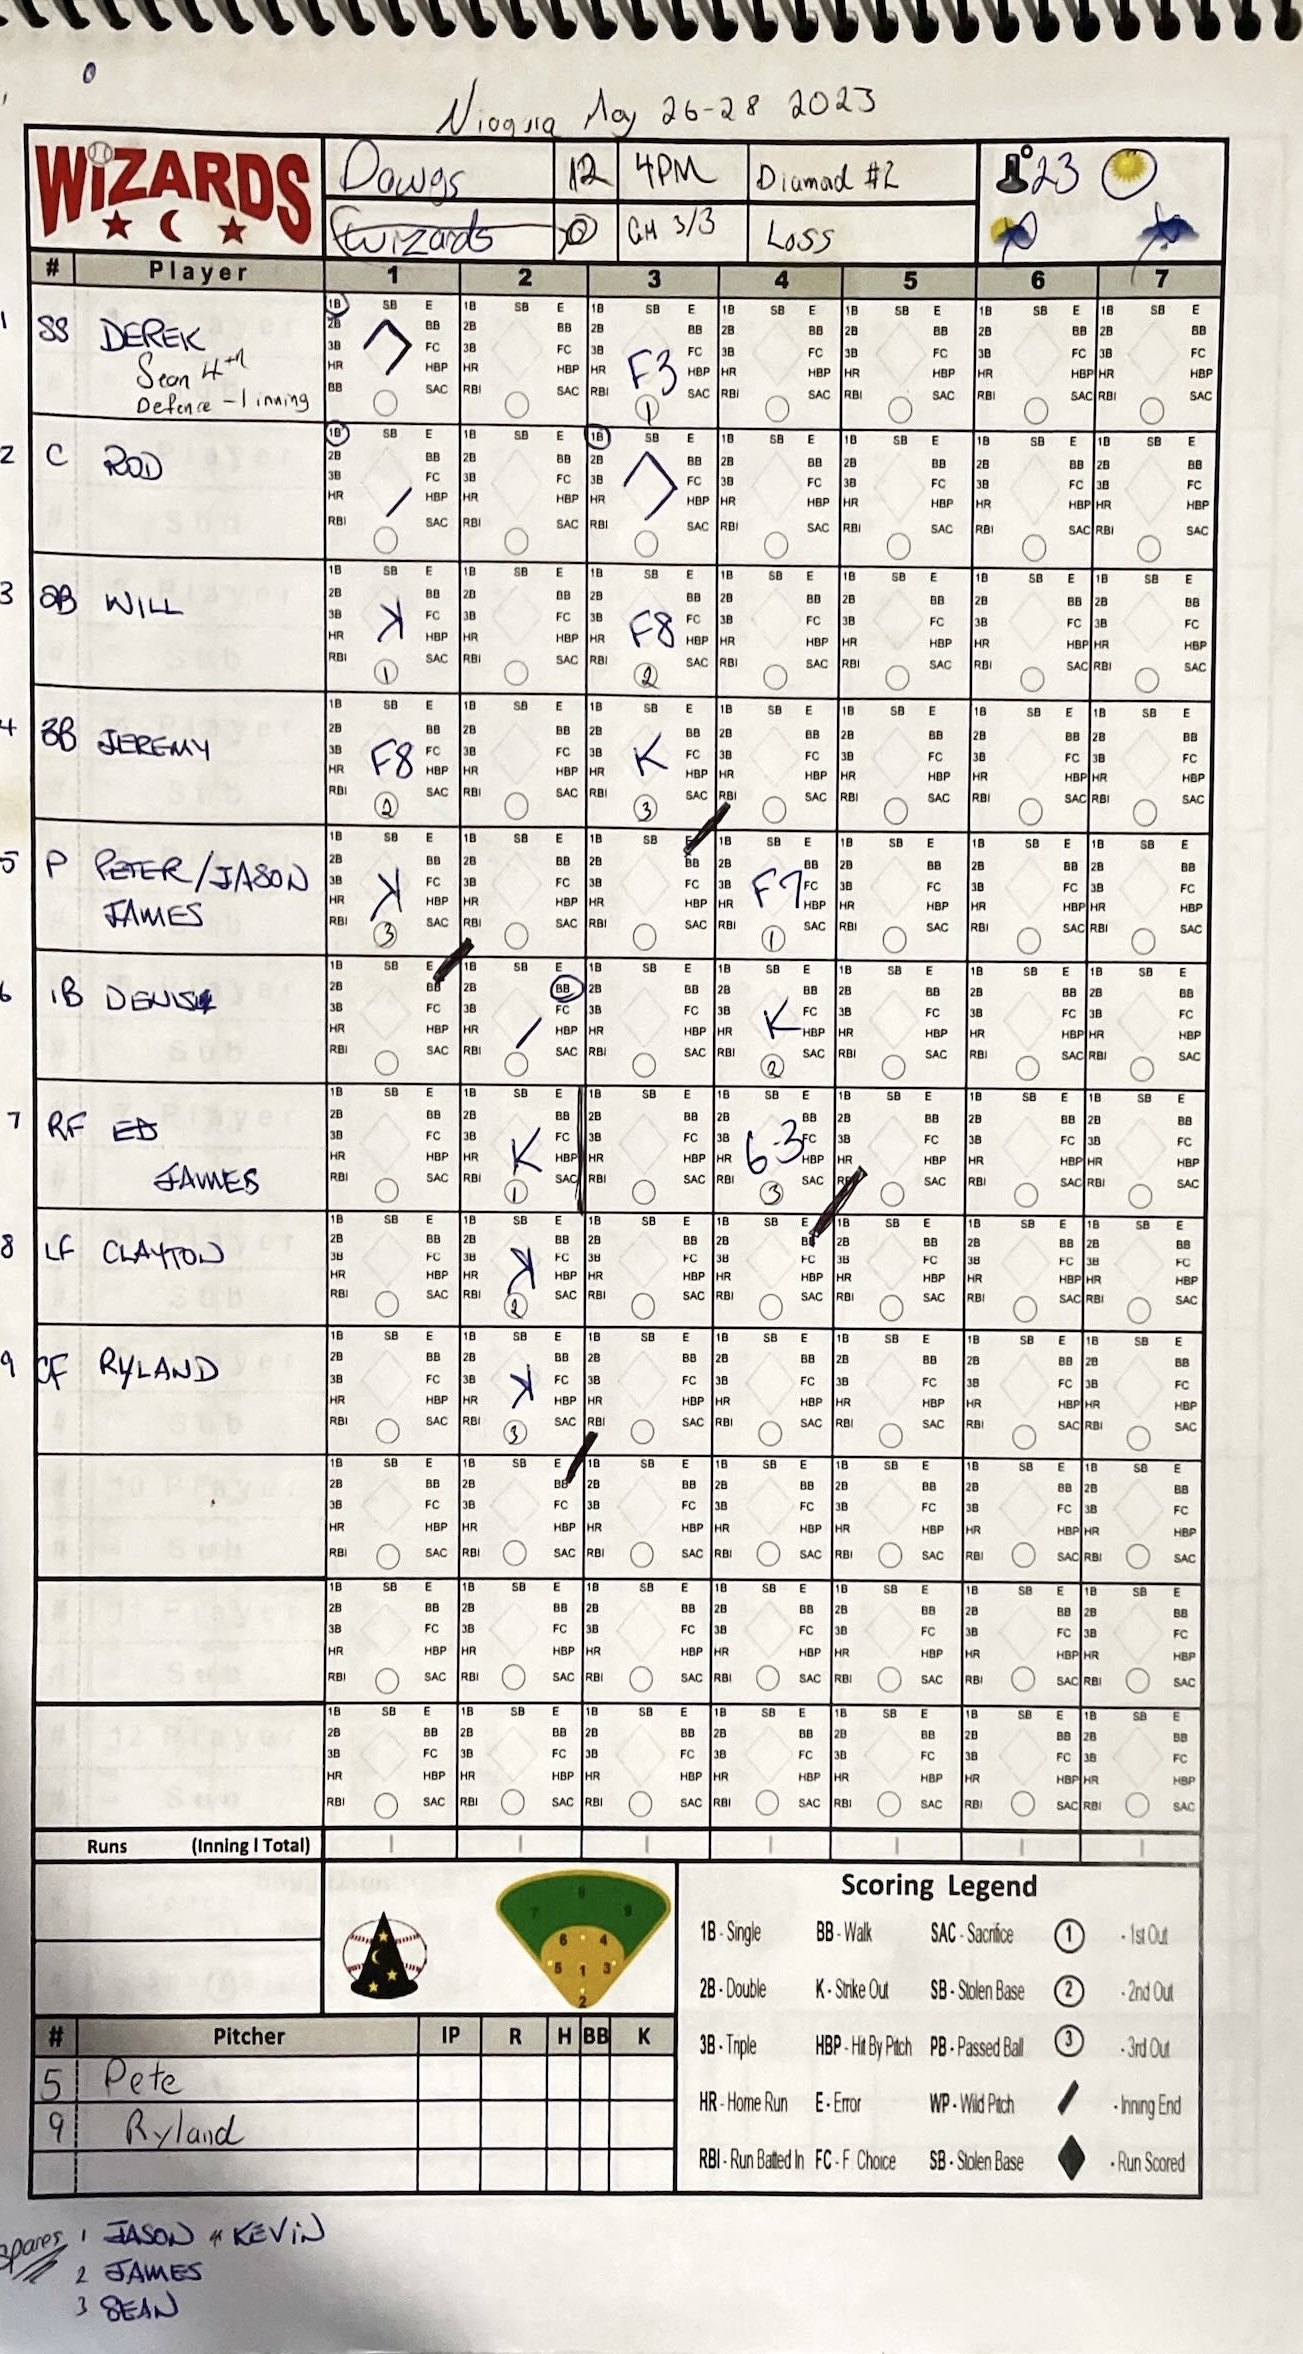 Niagra May 26-28 2023
WIZARDS
Dawgs 12 4PM Diamond #2 23
Wizards 0 GM 3/3 Loss
# Player 1 2 3 4 5 6 7
1 SS DEREK
Sean 4th
Defence - 1 inning
F3 1
2 C ROD
3 2B WILL K 1 F8 2
4 3B JEREMY F8 2 K 3
5 P PETER/JASON K 3 F7 1
JAMES
6 1B DENIS BB K 2
7 RF ED K 1 6-3 3
JAMES
8 LF CLAYTON K 2
9 CF RYLAND K 3
1B SB E
2B BB
3B FC
HR HBP
RBI SAC
Runs (Inning | Total)
Scoring Legend
1B - Single BB - Walk SAC - Sacrifice 1 - 1st Out
2B - Double K - Strike Out SB - Stolen Base 2 - 2nd Out
3B - Triple HBP - Hit By Pitch PB - Passed Ball 3 - 3rd Out
HR - Home Run E - Error WP - Wild Pitch - Inning End
RBI - Run Batted In FC - F. Choice SB - Stolen Base - Run Scored
8
7 9
6 4
5 1 3
2
# Pitcher IP R H BB K
5 Pete
9 Ryland
Spares 1 JASON & KEVIN
2 JAMES
3 SEAN